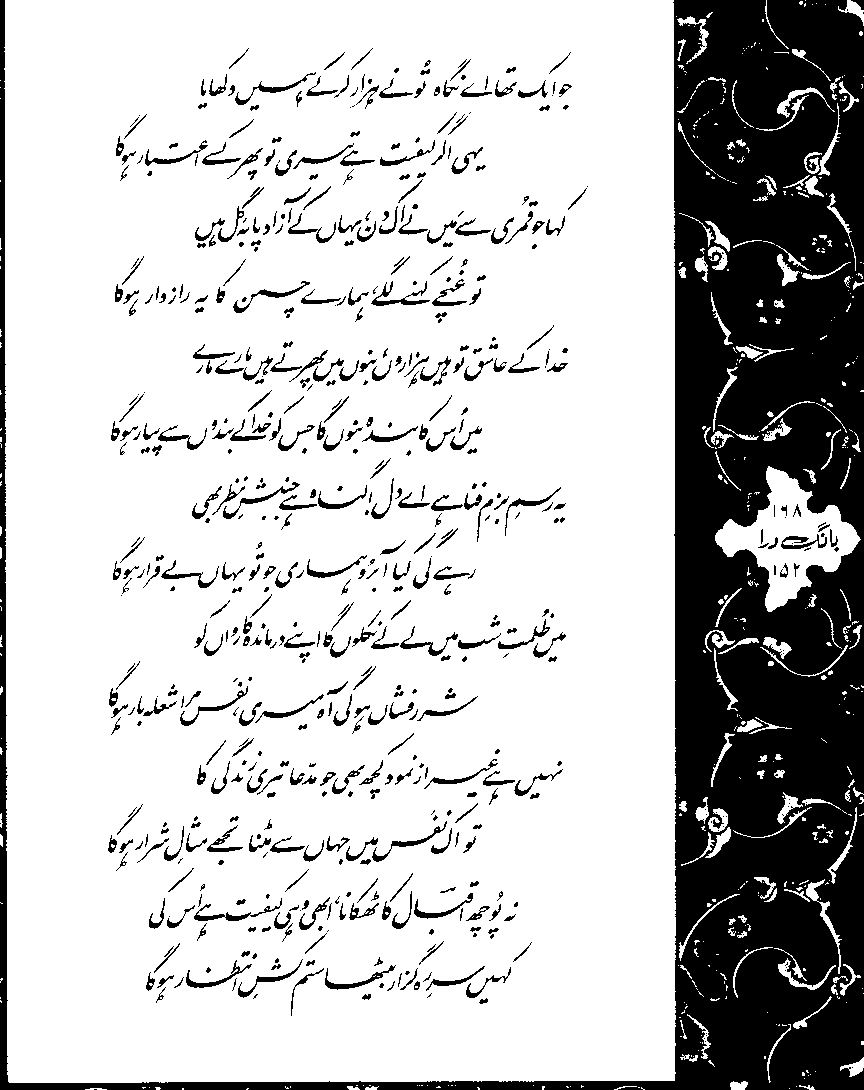 جو ایک تھا اے نگاہ تُو نے ہزار کر کے ہمیں دکھایا
یہی اگر کیفیت ہے تیری تو پھر کسے اعتبار ہوگا
کہا جو قُمری سے مَیں نے اک دن، یہاں کے آزاد پا بہ گِل ہیں
تو غُنچے کہنے لگے، ہمارے چمن کا یہ رازدار ہوگا
خدا کے عاشق تو ہیں ہزاروں، بنوں میں پھرتے ہیں مارے مارے
میں اُس کا بندہ بنوں گا جس کو خدا کے بندوں سے پیار ہوگا
یہ رسمِ بزمِ فنا ہے اے دل! گناہ ہے جنبشِ نظر بھی
رہے گی کیا آبرو ہماری جو تُو یہاں بے قرار ہوگا
میں ظُلمتِ شب میں لے کے نکلوں گا اپنے درماندہ کارواں کو
شررفشاں ہوگی آہ میری، نفَس مرا شعلہ بار ہوگا
نہیں ہے غیر از نمود کچھ بھی جو مدّعا تیری زندگی کا
تو اک نفَس میں جہاں سے مِٹنا تجھے مثالِ شرار ہوگا
نہ پُوچھ اقبالؔ کا ٹھکانا، ابھی وہی کیفیت ہے اُس کی
کہیں سرِ رہ گزار بیٹھا ستم کشِ انتظار ہوگا
۱۶۸
بانگِ درا
۱۵۲